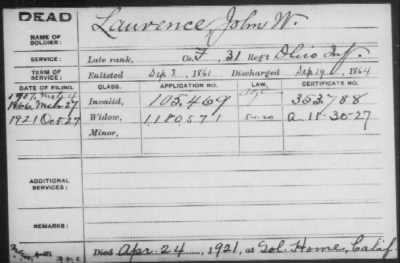 DEAD
NAME OF SOLDIER: Lawrence, John W.
SERVICE: Late rank, Co. F, 31 Reg't Ohio Inf.
TERM OF SERVICE: Enlisted Sep 3, 1861 Discharged Sep 19, 1864
DATE OF FILING. CLASS. APPLICATION NO. LAW. CERTIFICATE NO.
1907
1866 Mch 27 Invalid, 105,469 353,788
1921 Oct 27 Widow, 1180,571 A-11-30-27
Minor,
ADDITIONAL SERVICES:
REMARKS:
Died Apr. 24, 1921, at Sol. Home, Calif